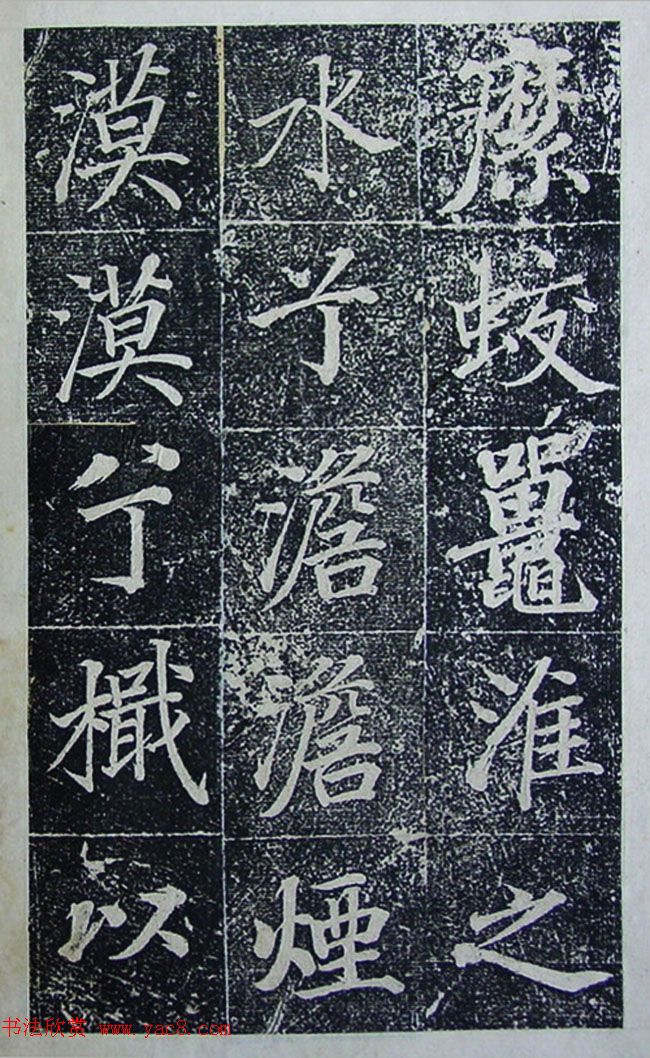 蛟鼉淮之
水兮澹澹煙
漠漠兮檝以
书法欣赏 www.yac8.com